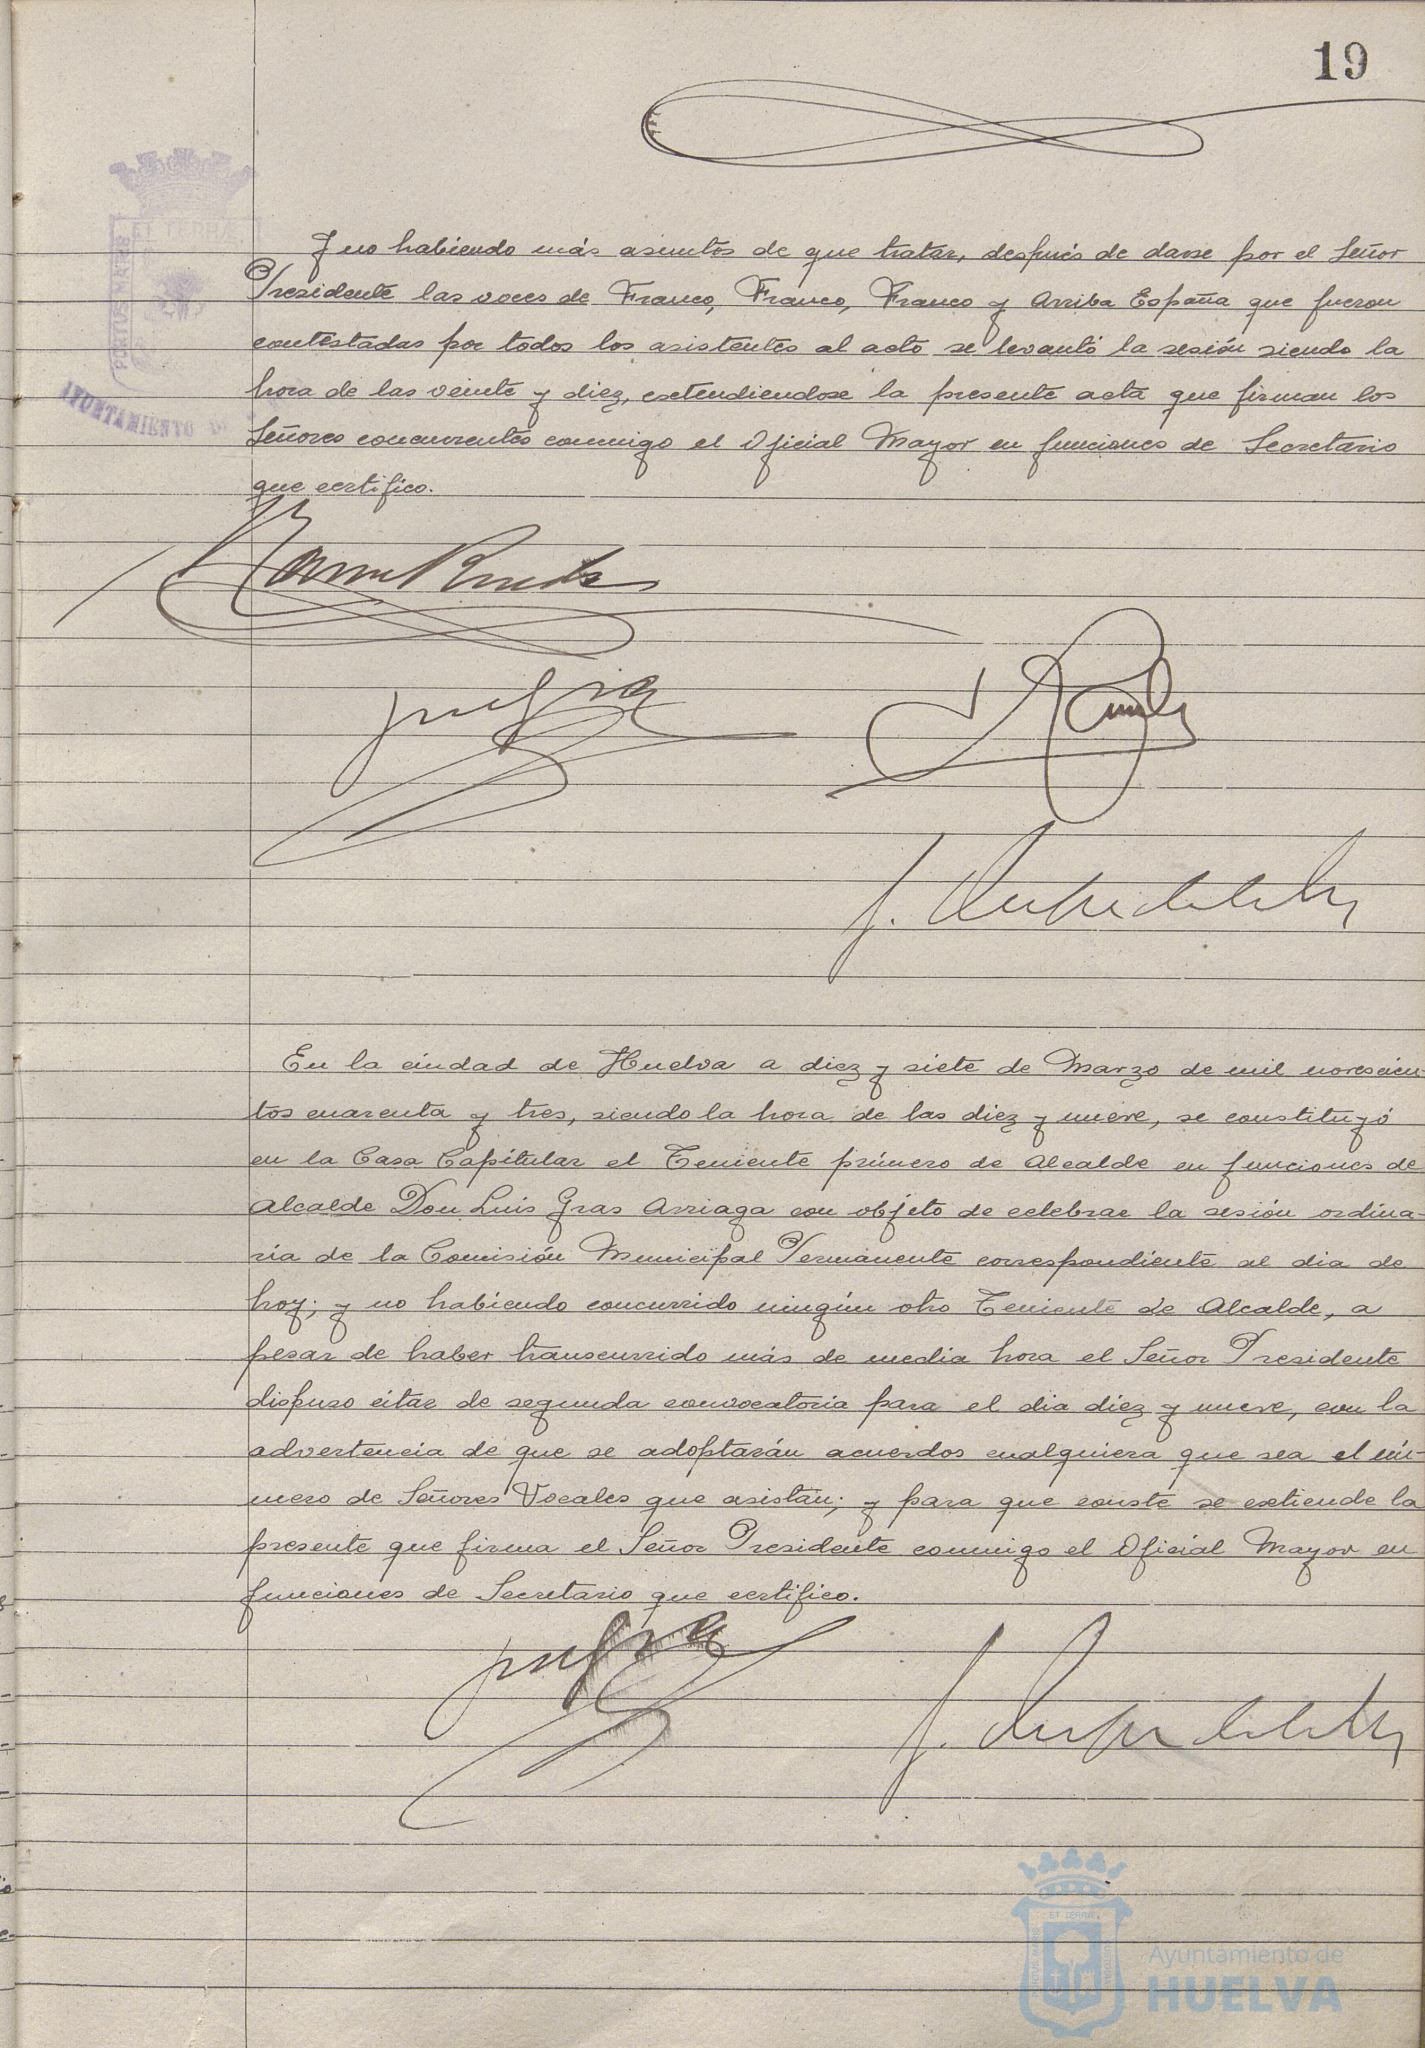 19
Y no habiendo más asuntos de que tratar, después de darse por el Señor
Presidente las voces de Franco, Franco, Franco y Arriba España que fueron
contestadas por todos los asistentes al acto se levantó la sesión siendo la
hora de las veinte y diez, extendiendose la presente acta que firman los
Señores concurrentes conmigo el Oficial Mayor en funciones de Secretario
que certifico.
ET TERRAE
PORTUS MARIS
AYUNTAMIENTO DE
En la ciudad de Huelva a diez y siete de Marzo de mil novecien-
tos cuarenta y tres, siendo la hora de las diez y nueve, se constituyó
en la Casa Capitular el Teniente primero de Alcalde en funciones de
Alcalde Don Luis Gras Arriaga con objeto de celebrar la sesión ordina-
ria de la Comisión Municipal Permanente correspondiente al dia de
hoy; y no habiendo concurrido ningún otro Teniente de Alcalde, a
pesar de haber transcurrido más de media hora el Señor Presidente
dispuso citar de segunda convocatoria para el dia diez y nueve, con la
advertencia de que se adoptarán acuerdos cualquiera que sea el nú-
mero de Señores Vocales que asistan; y para que conste se extiende la
presente que firma el Señor Presidente conmigo el Oficial Mayor en
funciones de Secretario que certifico.
ET TERRAE
Ayuntamiento de
HUELVA